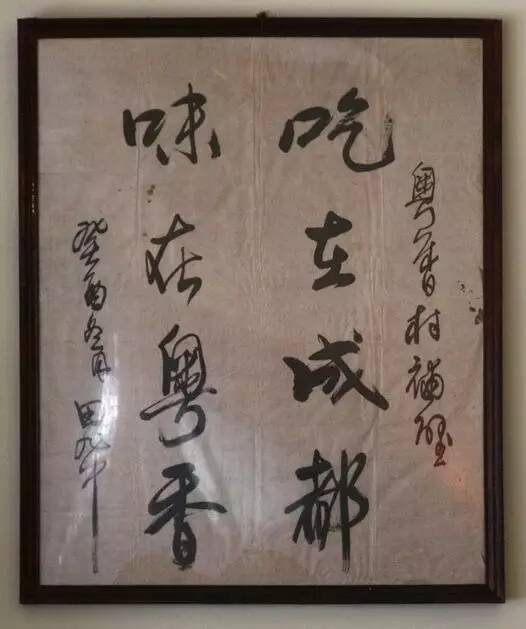 粤香村補壁
吃在成都
味在粤香
癸酉冬月 田旭中